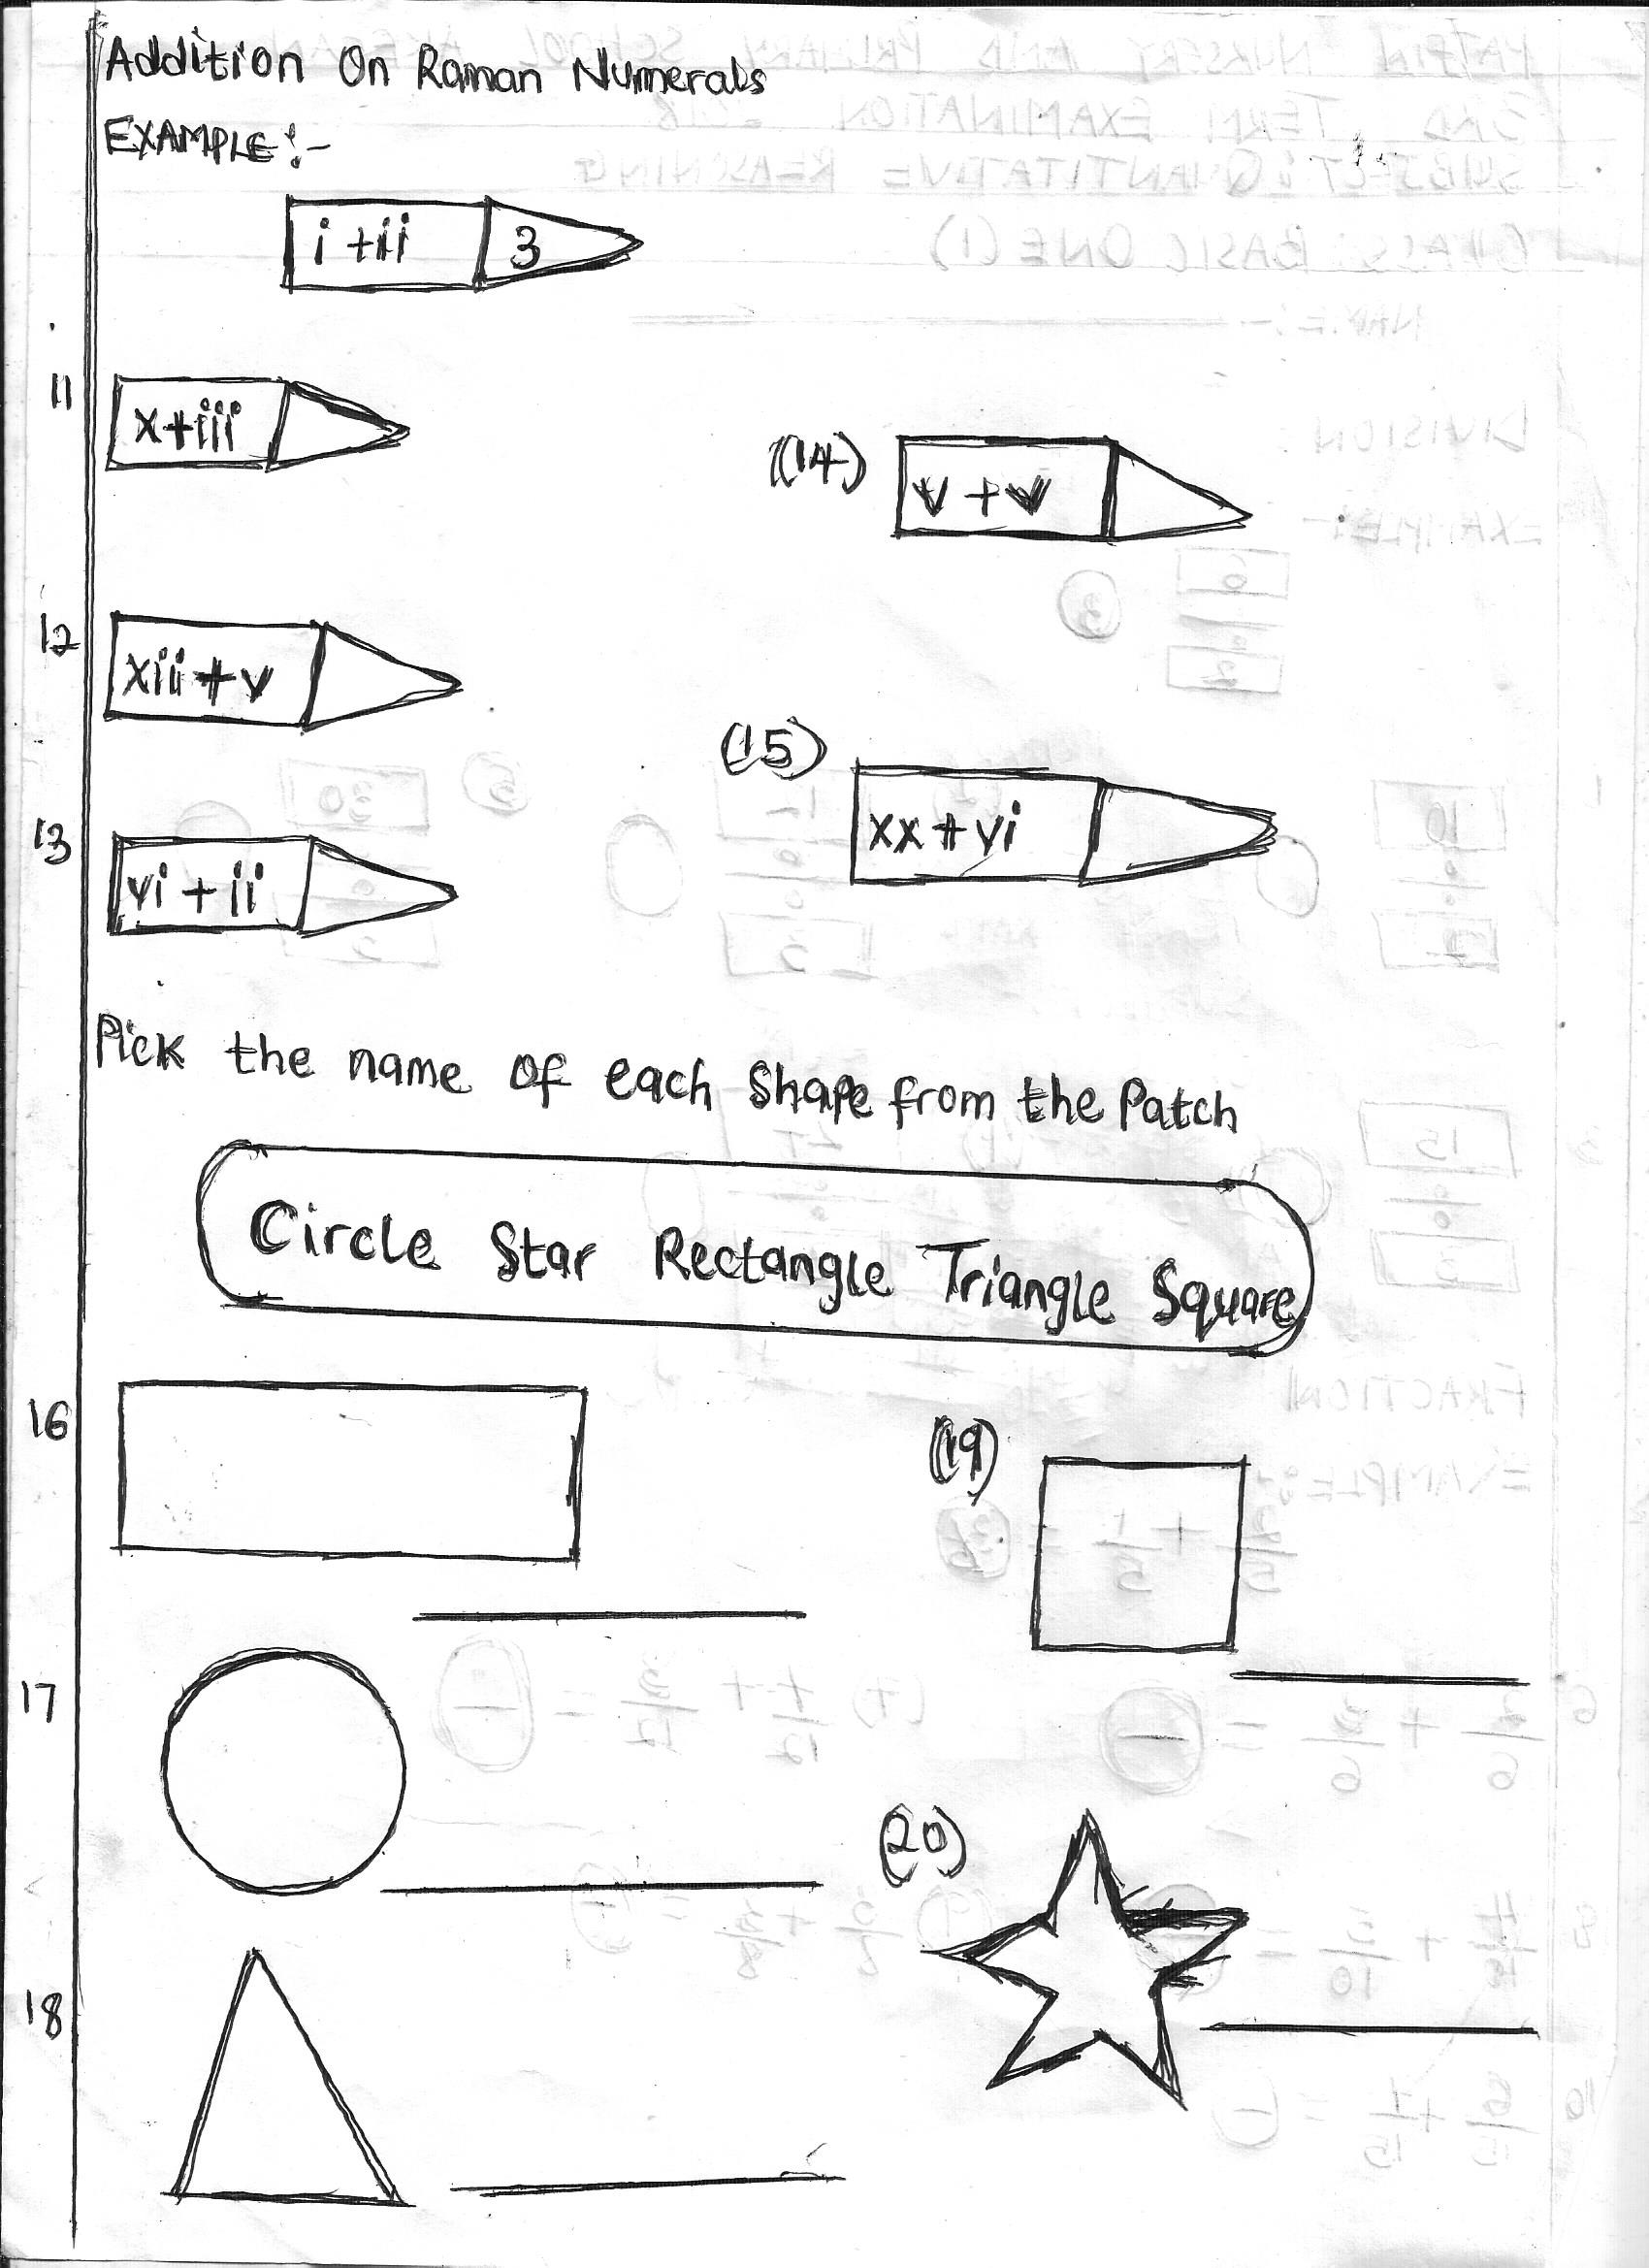 Addition On Raman Numerals
EXAMPLE:-
i + ii 3
11 x+iii
(14) v + v
12 xii + v
(15) xx + vi
13 vi + ii
Pick the name of each Shape from the Patch
Circle Star Rectangle Triangle Square
16
(19)
17
(20)
18